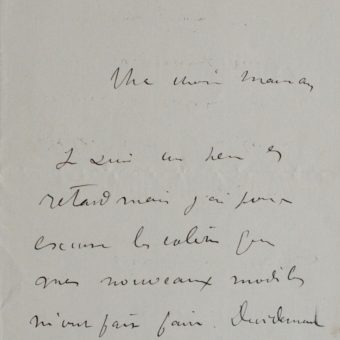 Ma chère maman
Je suis un peu en
retard mais j'ai pour
excuse les colères que
mes nouveaux modèles
m'ont fait faire. Décidément